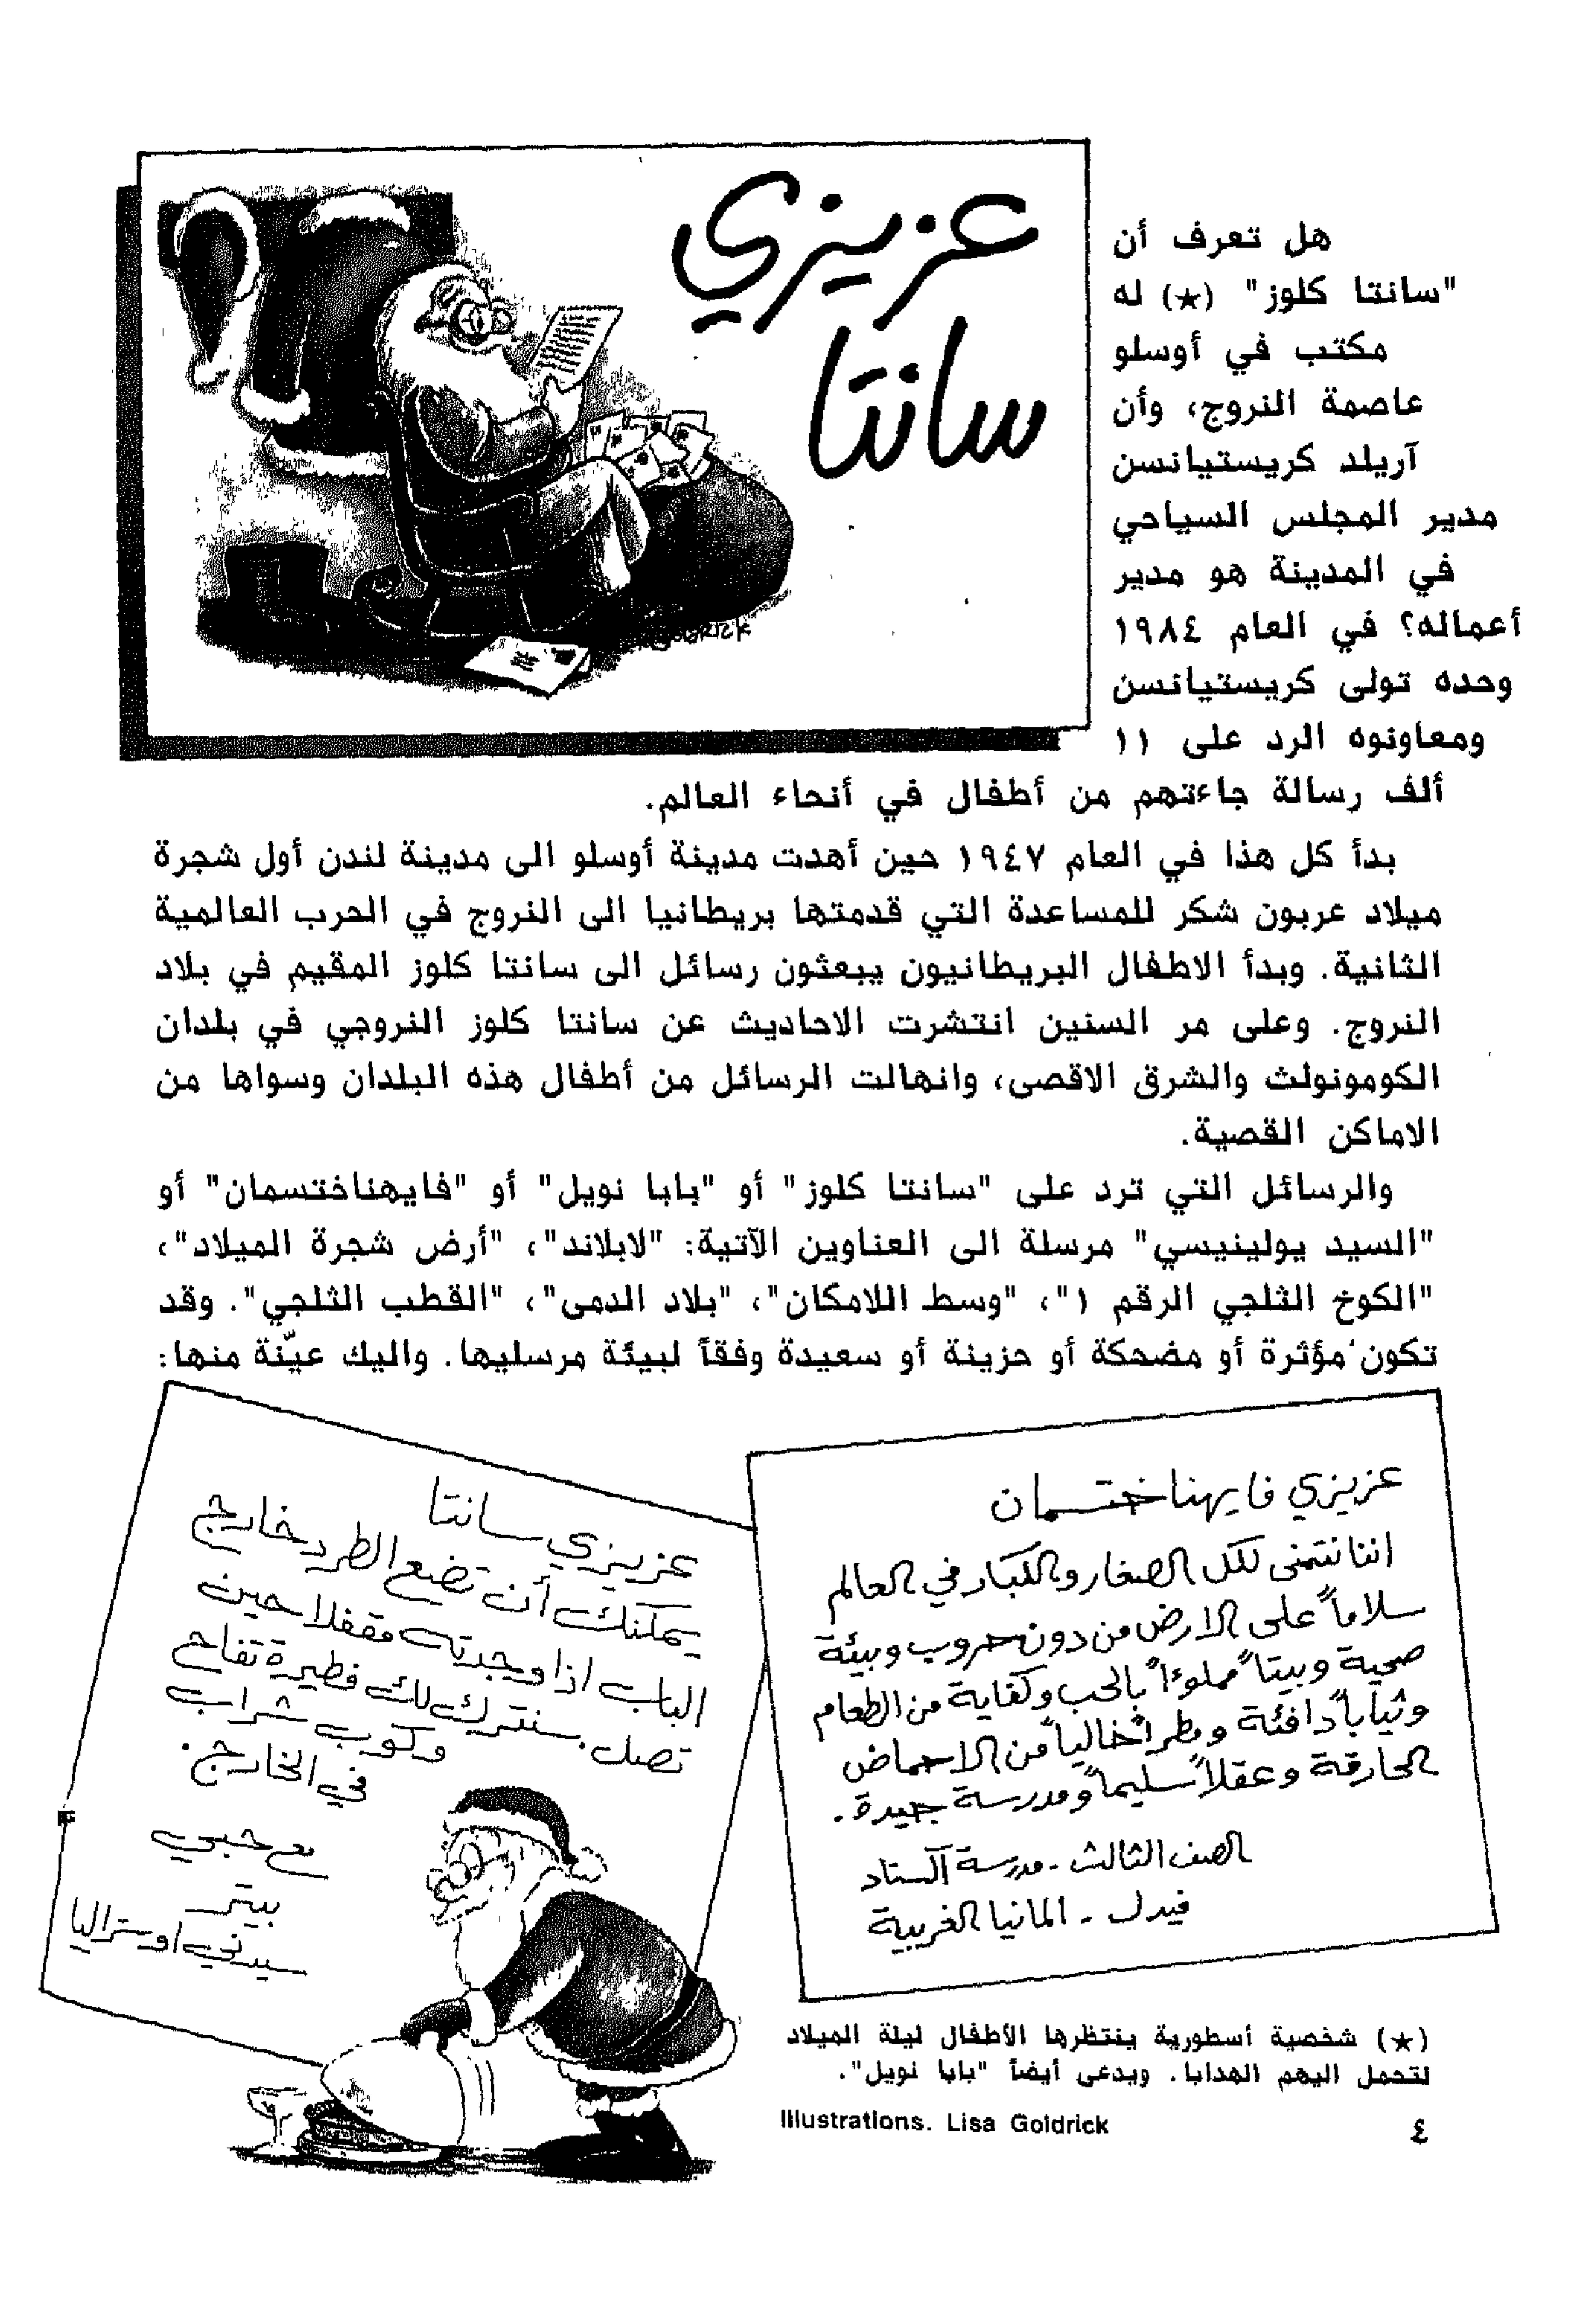 عزيزي
سانتا
هل تعرف أن
"سانتا كلوز" (★) له
مكتب في أوسلو
عاصمة النروج، وأن
آريلد كريستيانسن
مدير المجلس السياحي
في المدينة هو مدير
أعماله؟ في العام ١٩٨٤
وحده تولى كريستيانسن
ومعاونوه الرد على ١١
ألف رسالة جاءتهم من أطفال في أنحاء العالم.
بدأ كل هذا في العام ١٩٤٧ حين أهدت مدينة أوسلو الى مدينة لندن أول شجرة
ميلاد عربون شكر للمساعدة التي قدمتها بريطانيا الى النروج في الحرب العالمية
الثانية. وبدأ الاطفال البريطانيون يبعثون رسائل الى سانتا كلوز المقيم في بلاد
النروج. وعلى مر السنين انتشرت الاحاديث عن سانتا كلوز النروجي في بلدان
الكومونولث والشرق الاقصى، وانهالت الرسائل من أطفال هذه البلدان وسواها من
الاماكن القصية.
والرسائل التي ترد على "سانتا كلوز" أو "بابا نويل" أو "فايهناختسمان" أو
"السيد يولينيسي" مرسلة الى العناوين الآتية: "لابلاند"، "أرض شجرة الميلاد"،
"الكوخ الثلجي الرقم ١"، "وسط اللامكان"، "بلاد الدمى"، "القطب الثلجي". وقد
تكون مؤثرة أو مضحكة أو حزينة أو سعيدة وفقاً لبيئة مرسليها. واليك عيّنة منها:
عزيزي فايهناختسمان
اننا نتمنى لكل الصغار والكبار في العالم
سلاماً على الارض من دون حروب وبيئة
صحية وبيتاً مملوءاً بالحب وكفاية من الطعام
وثياباً دافئة ومطراً خالياً من الاحماض
الحارقة وعقلاً سليماً ومدرسة جيدة.
الصف الثالث - مدرسة آلستاد
فيدل - المانيا الغربية
عزيزي سانتا
يمكنك أن تضع الطرد خارج
الباب اذا وجدته مقفلا حين
تصل. سنترك لك فطيرة تفاح
وكوب شراب
في الخارج.
مع حبي
بيتر
سيدني اوستراليا
(★) شخصية أسطورية ينتظرها الأطفال ليلة الميلاد
لتحمل اليهم الهدايا. ويدعى أيضاً "بابا نويل".
Illustrations. Lisa Goldrick
٤